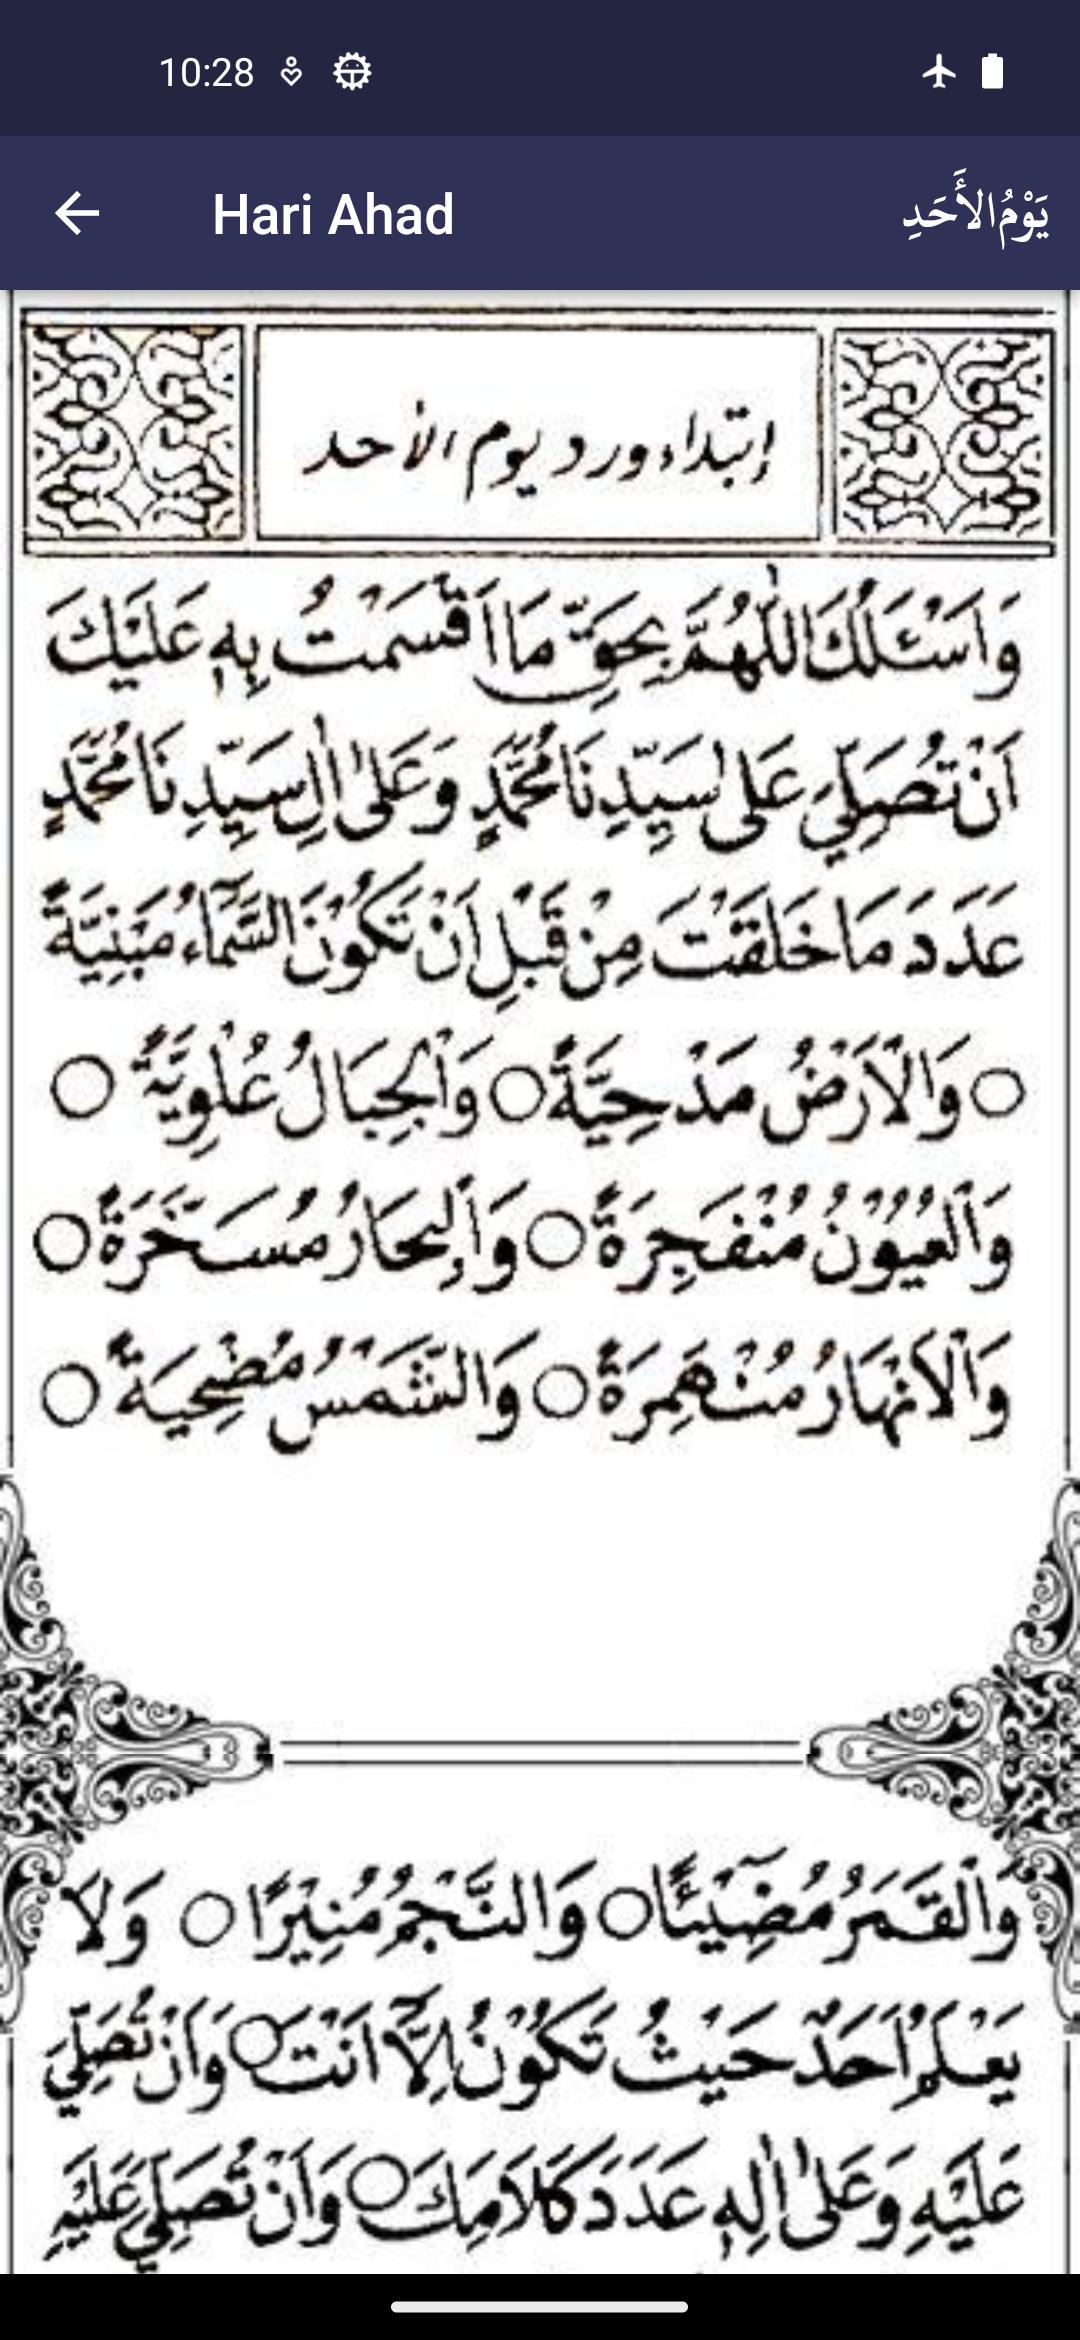 10:28
Hari Ahad
يَوْمُ الأَحَدِ
إبتداء ورد يوم الأحد
وَاَسْئَلُكَ اللّٰهُمَّ بِحَقِّ مَا اَقْسَمْتُ بِهٖ عَلَيْكَ
اَنْ تُصَلِّيَ عَلٰى سَيِّدِنَا مُحَمَّدٍ وَعَلٰى اٰلِ سَيِّدِنَا مُحَمَّدٍ
عَدَدَ مَا خَلَقْتَ مِنْ قَبْلِ اَنْ تَكُوْنَ السَّمَآءُ مَبْنِيَّةً
○ وَالْاَرْضُ مَدْحِيَّةً ○ وَالْجِبَالُ عُلْوِيَّةً ○
وَالْعُيُوْنُ مُنْفَجِرَةً ○ وَالْبِحَارُ مُسَخَّرَةً ○
وَالْاَنْهَارُ مُنْهَمِرَةً ○ وَالشَّمْسُ مُضْحِيَةً ○
وَالْقَمَرُ مُضِيْٓئًا ○ وَالنَّجْمُ مُنِيْرًا ○ وَلَا
يَعْلَمُ اَحَدٌ حَيْثُ تَكُوْنُ اِلَّآ اَنْتَ ○ وَاَنْ تُصَلِّيَ
عَلَيْهِ وَعَلٰى اٰلِهٖ عَدَدَ كَلَامِكَ ○ وَاَنْ تُصَلِّيَ عَلَيْهِ